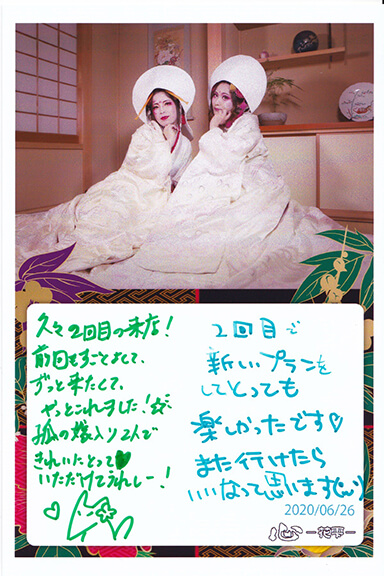 久々2回目の来店!
前回もすごくよくて、
ずっと来たくて、
やっとこれました!
狐の嫁入り2人で
きれいにとって♡
いただけてうれしー!
2回目で
新しいプランを
してとっても
楽しかったです♡
また行けたら
いいなって思います
2020/06/26
－花雫－